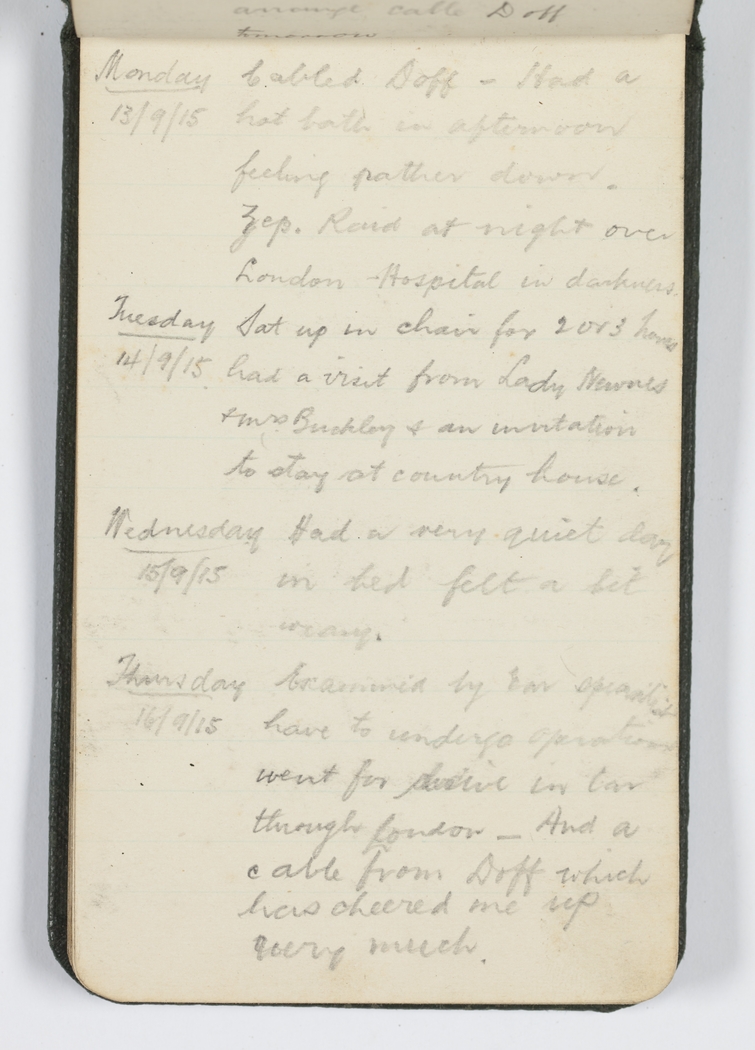 arrange cable Doff
tomorrow
Monday Cabled Doff - Had a
13/9/15 hot bath in afternoon
feeling rather down.
Zep. Raid at night over
London - Hospital in darkness.
Tuesday Sat up in chair for 2 or 3 hours
14/9/15 had a visit from Lady Newnes
+ Mrs Buckley & an invitation
to stay at country house.
Wednesday Had a very quiet day
15/9/15 in bed felt a bit
weary.
Thursday Examined by Ear specialist
16/9/15 have to undergo operation
went for drive in Car
through London - And a
cable from Doff which
has cheered me up
very much.